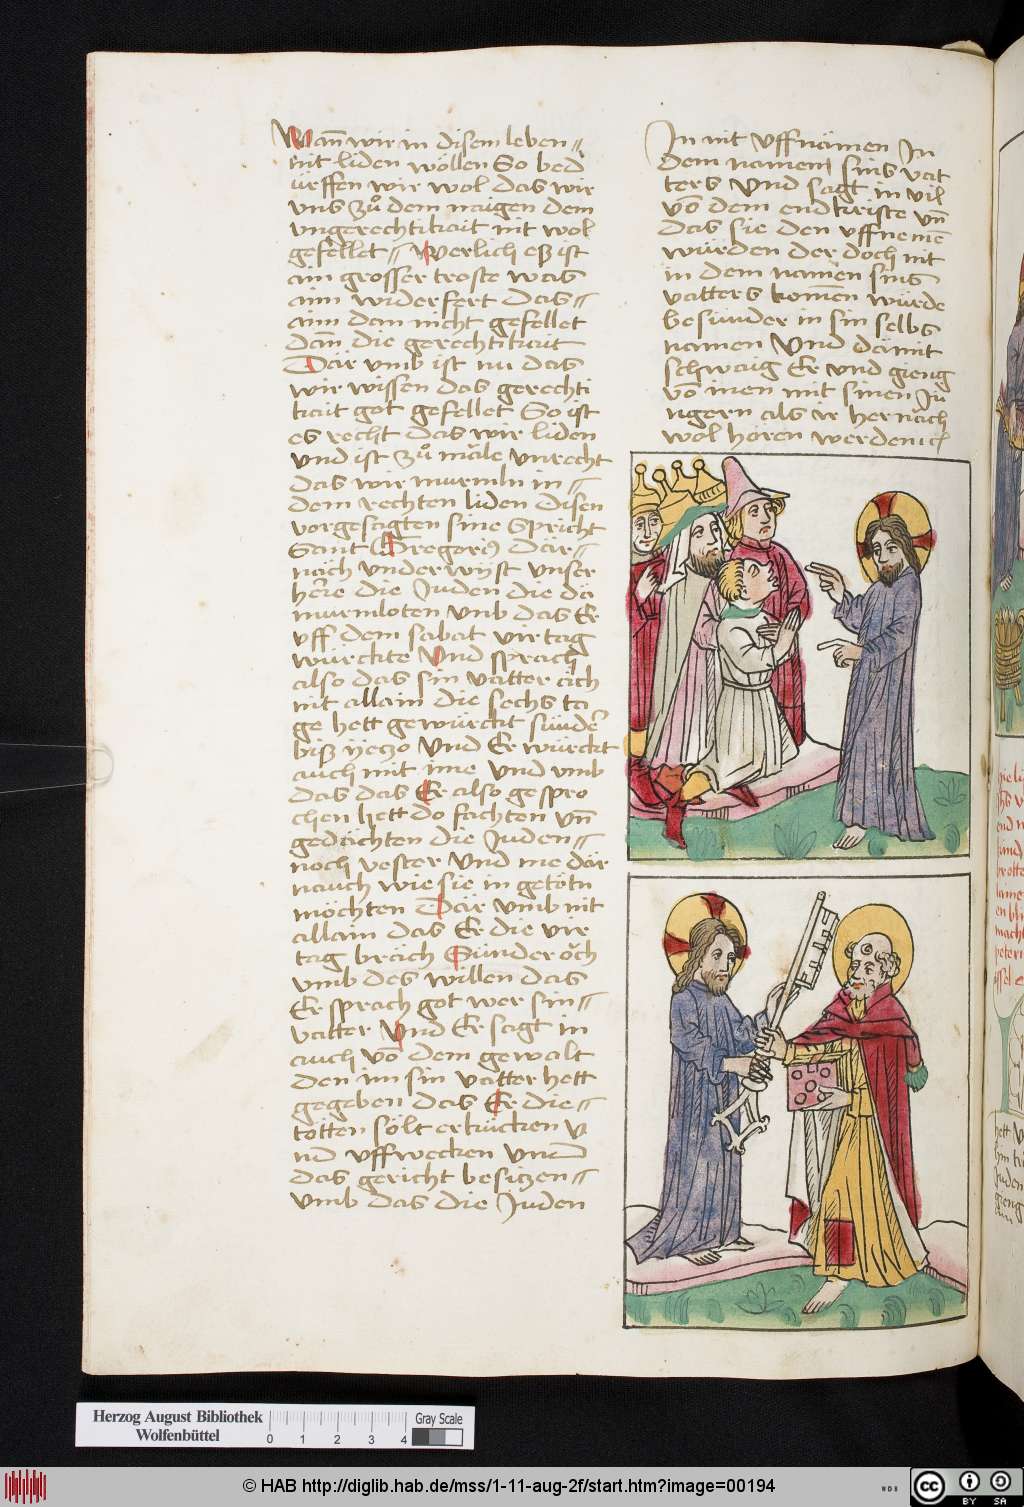 Wann wir in disem leben
nit liden wöllen So bed
ürffen wir wol das wir
vns zů dem naigen dem
vngerechtikait nit wol
gefellet werlich eß ist
ain grosser troste was
aim widerfert das
aim dan nicht gefellet
dañ die gerechtikait
Där vmb ist nu das
wir wissen das gerechti
kait got gefellet So ist
es recht das wir liden
vnd ist zů mäle vnrecht
das wir murmln in
dem rechten liden disen
vorgesagten sine spricht
Sant Gregori9 där
näch vnderwyst vnser
here die Juden die dä
murmloten vmb das Er
vff dem sabat virtag
würckte Vnd sprach
also das sin vatter äch
nit allain die sechs ta
ge hett gewürckt sünder
biß yeczo Vnd Er würckt
auch mit ime vnd vmb
das das Er also gespro
chen hett do fachten vñ
gedächten die Juden
noch vester Vnd me där
nauch wie sie in getötn
möchten Där vmb nit
allain das Er die vir
tag bräch Sünder öch
vmb des willen das
Er sprach got wer sin
vatter Vnd Er sagt in
auch võ dem gewalt
den im sin vatter hett
gegeben das Er die
totten sölt erkücken v
nd vffwecken vnd
das gericht besitzen
vmb das die Juden
In nit vffnämen In
dem namem sins vat
ters Vnd sagt in vil
võ dem endkriste vñ
das sie den vffnemẽ
würden der doch nit
in dem namen sins
vatters komẽn würde
besünder in sin selbs
namen Vnd dämit
schwaig Er vnd gieng
võ inen mit sinen Jü
ngern als ir hernäch
wol hören werdent
Herzog August Bibliothek
Wolfenbüttel
0 1 2 3 4
Gray Scale
© HAB http://diglib.hab.de/mss/1-11-aug-2f/start.htm?image=00194
WDB
cc
BY SA